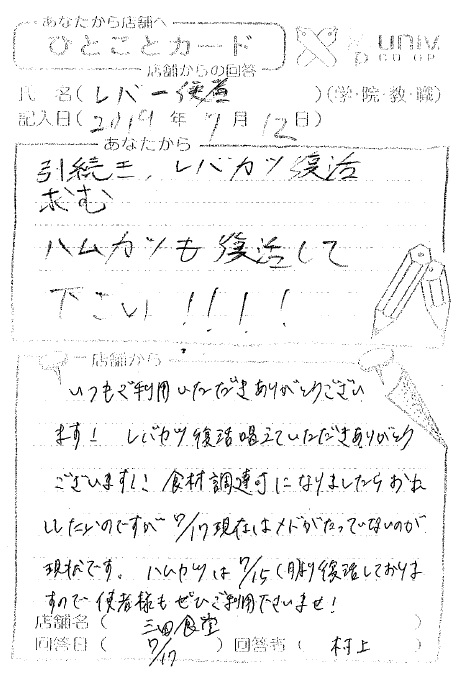 あなたから店舗へ
ひとことカード
店舗からの回答
univ.
CO-OP
氏 名(レバー使者)(学・院・教・職)
記入日(2019年7月12日)
あなたから
引続き、レバカツ復活
求む
ハムカツも復活して
下さい!!!!
店舗から
いつもご利用いただきありがとうござい
ます! レバカツ復活唱えていただきありがとう
ございます!! 食材調達可になりましたらおね
したいのですが 7/17現在はメドがたっていないのが
現状です。 ハムカツは7/15(月)より復活しておりま
すので使者様もぜひご利用下さいませ!
店舗名(三田食堂)
回答日(7/17)回答者(村上)